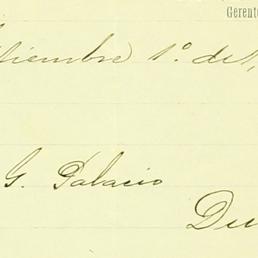 Gerente
tiembre 1º. de 1,
G. Palacio
Du